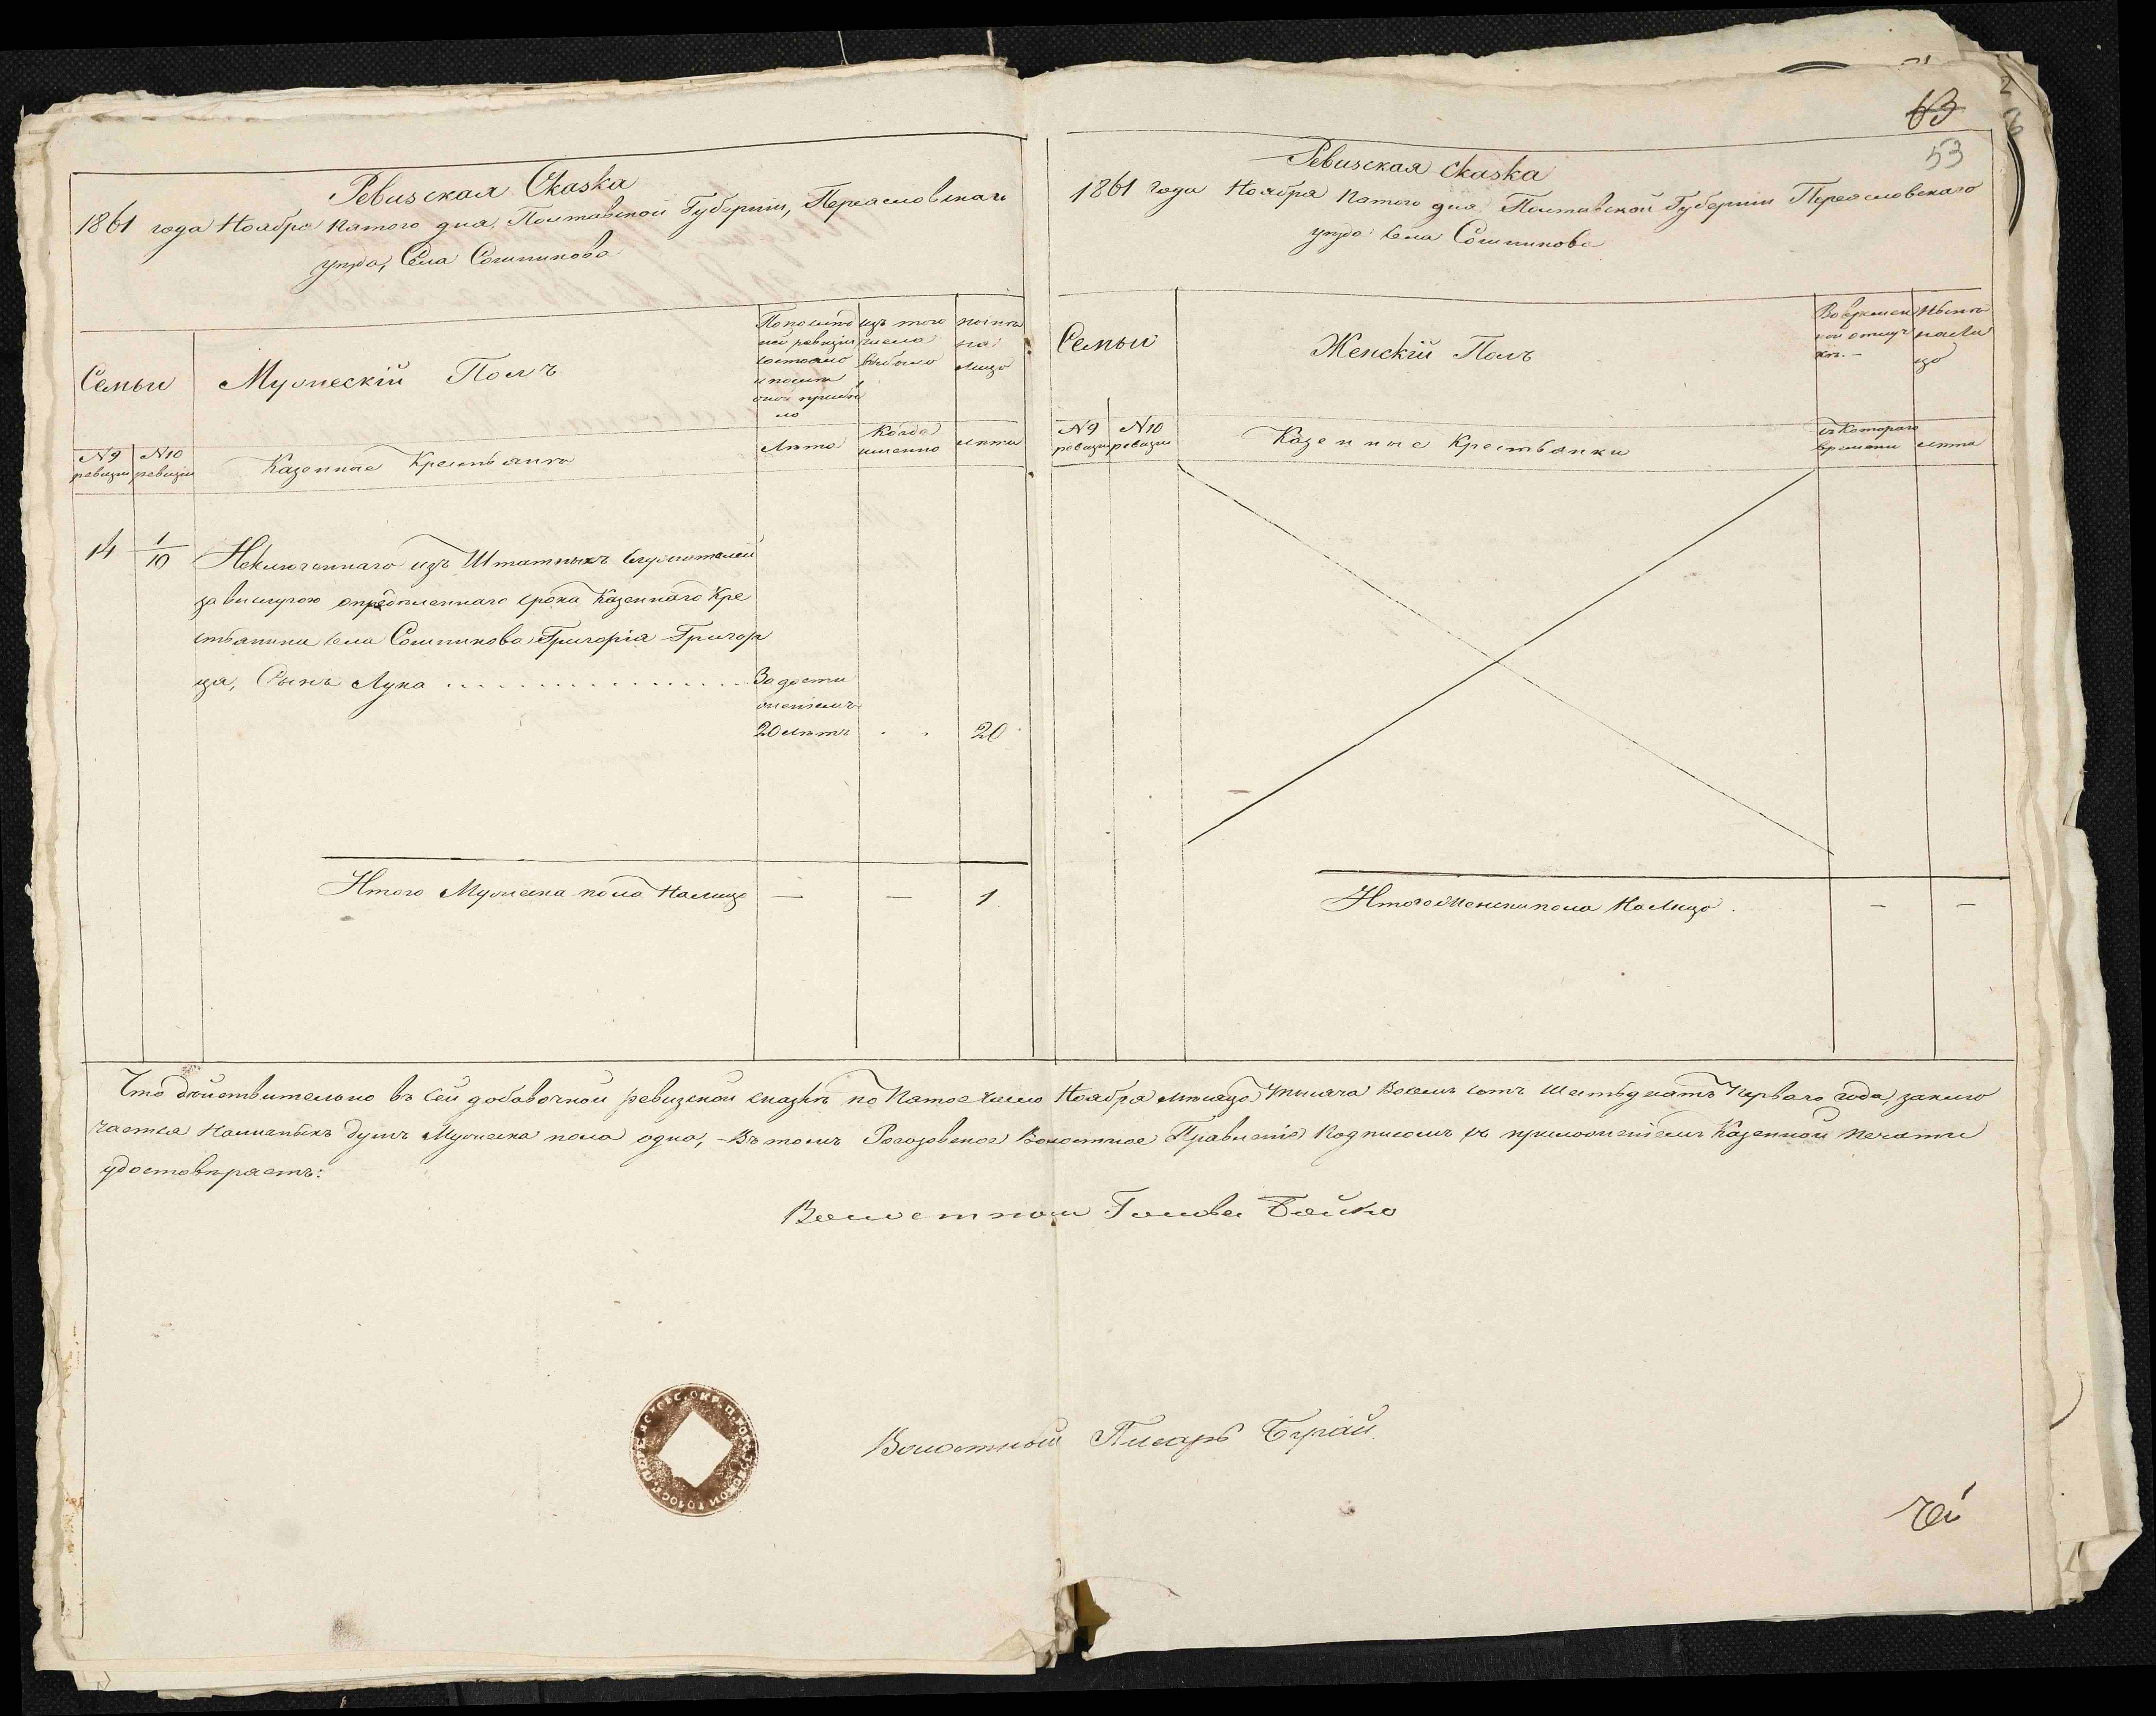 Ревизская Сказка
1861 года Ноября пятого дня, Полтавской Губернии, Переясловскаго
уезда, Села Сошникова
Семьи
Мужескій Полъ
По послѣд
ней ревизіи
состояло
и послѣ
оной прибы
ло
изъ того
числа
выбыло
нынѣ
на
лицо
№ 9 ревизіи
№ 10 ревизіи
Казенные Крестьяне
Лѣта
Когда
именно
лѣта
14
1/10
Исключеннаго изъ Штатныхъ служителей
за выслугою опредѣленнаго срока Казеннаго Кре
стьянина села Сошникова Григорія Григор
ца, Сынъ Лука
За дости
женіемъ
20 лѣтъ
20
Итого Мужеска пола Налицо
—
—
1.
63
53
Ревизская Сказка
1861 года Ноября пятого дня Полтавской Губернии Переясловскаго
уезда села Сошникова
Семьи
Женскій Полъ
Во времен
ной отлуч
кѣ.
Нынѣ
на ли
цо
№ 9 ревизіи
№ 10 ревизіи
Казенные Крестьянки
съ Котораго
времени
лѣта
Итого женска пола На Лицо.
—
—
Что дѣйствительно въ сей добавочной ревизской сказкѣ по Пятое число Ноября мѣсяца тысяча Восемь сотъ шестьдесятъ Перваго года, заклю
чается Наличныхъ душъ Мужеска пола одна, - Въ томъ Рогозовское Волостное Правленіе Подписомъ съ приложеніемъ Казенной Печати
удостовѣряетъ:
Волостной Голова Бойко
Волостный Писарь